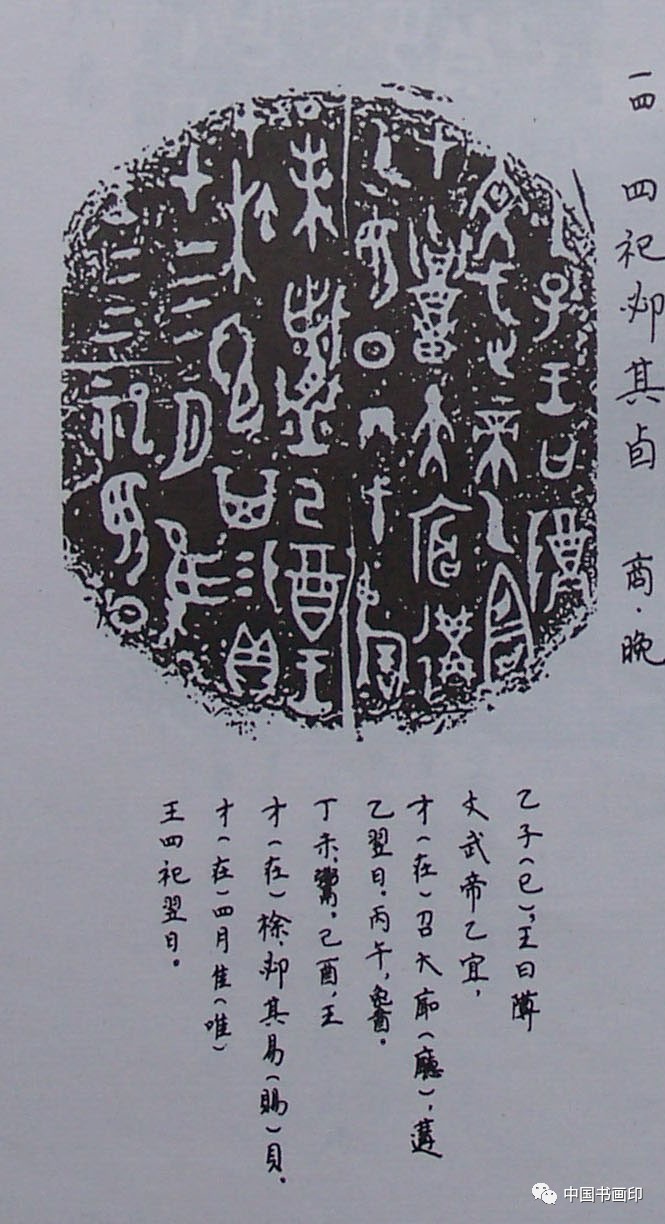 一四　四祀邲其卣　商·晚
乙子（巳），王曰
文武帝乙宜，
才（在）召大廊（廳），遘
乙翌日。丙午，
丁未，鬻。己酉，王
才（在）梌，邲其易（賜）貝。
才（在）四月隹（唯）
王四祀翌日。
中国书画印